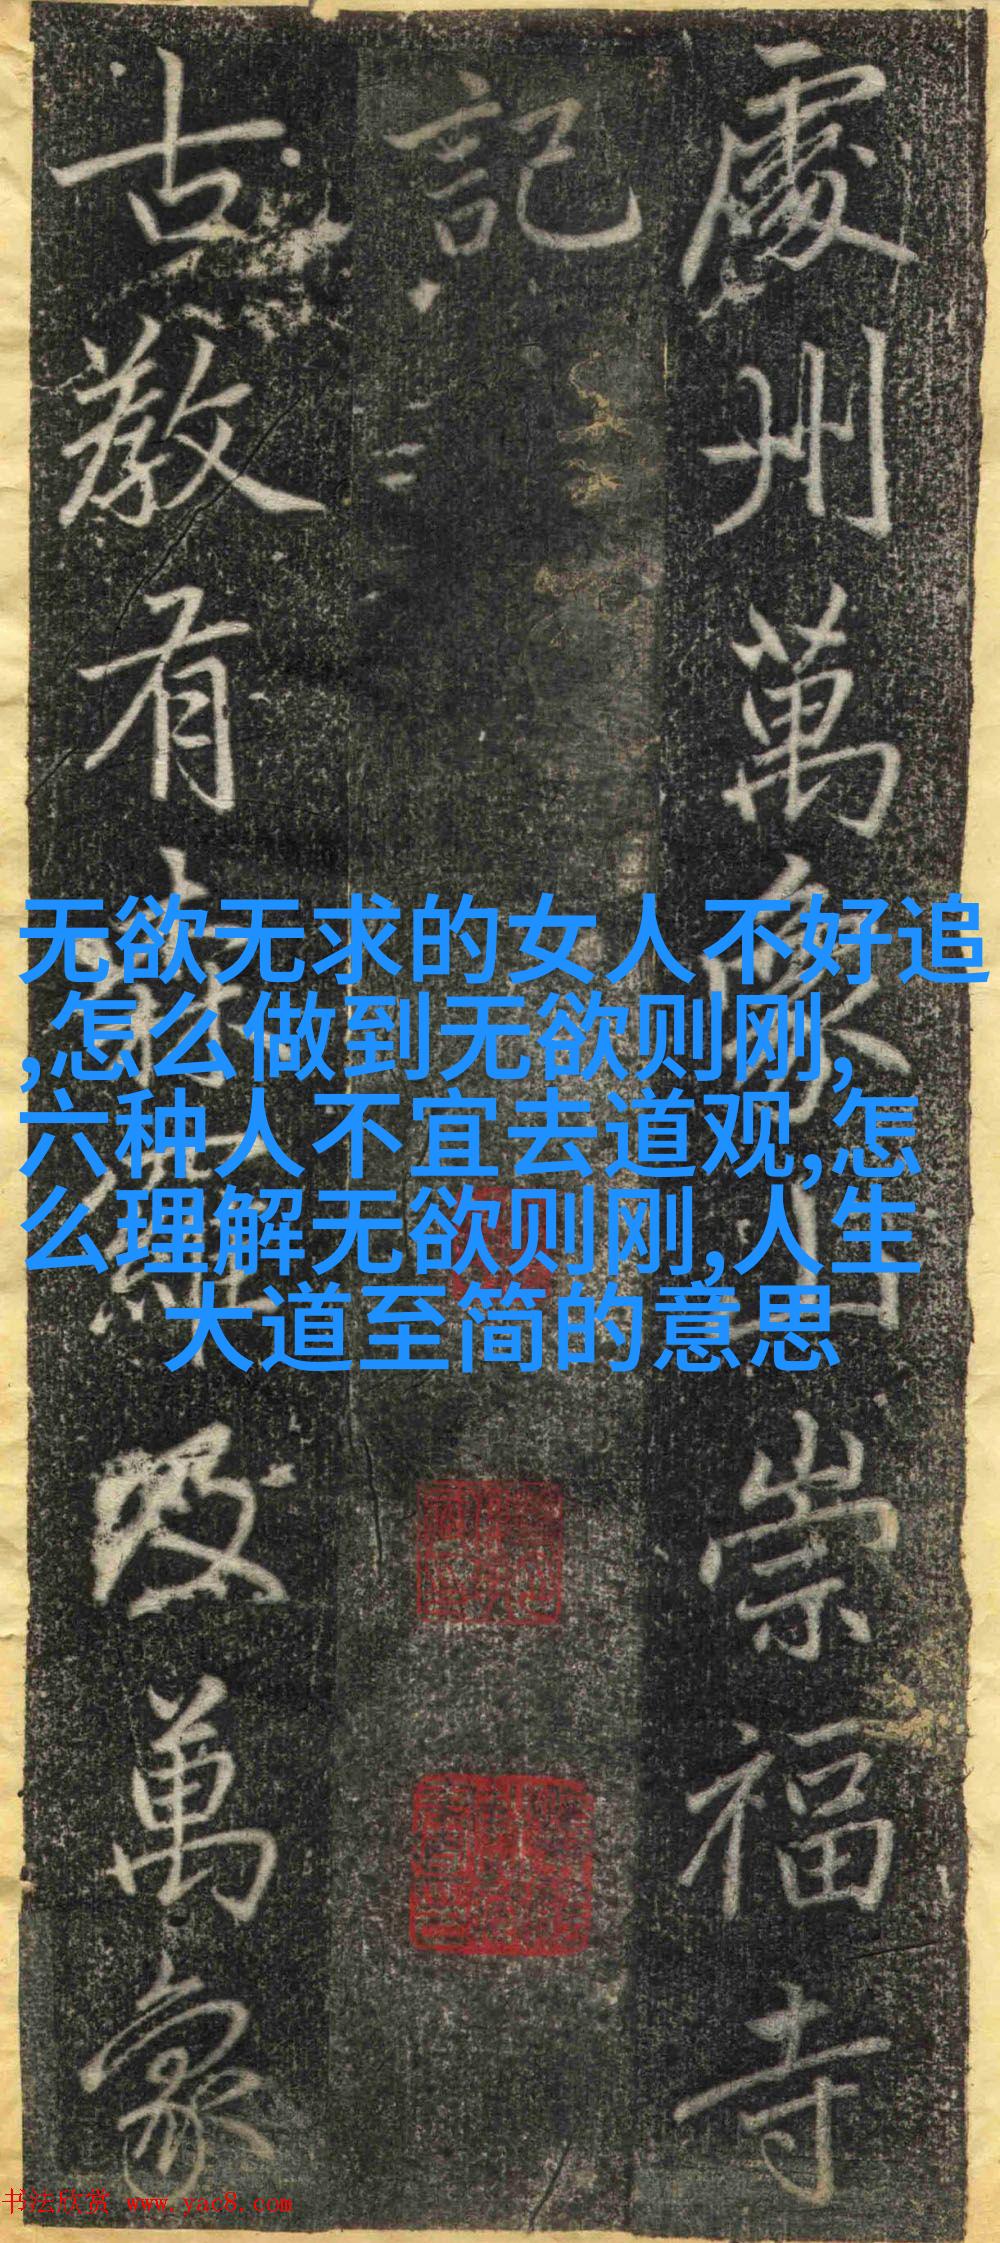 處州萬象山崇福寺
記
古教有
及萬象
无欲无求的女人不好追
,怎么做到无欲则刚,
六种人不宜去道观,怎
么理解无欲则刚,人生
大道至简的意思
书法欣赏 www.yac8.com